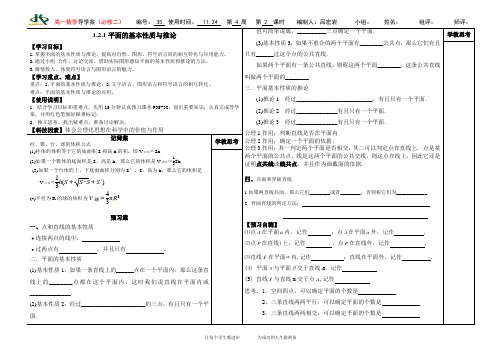 高一数学导学案（必修二） 编号： 35 使用时间： 11.24 第 4 周 第 2 课时 编制人：闫宏岩 小组： 姓名： 组评： 师评：
1.2.1平面的基本性质与推论
【学习目标】
1.掌握平面的基本性质与推论，提高对自然、图形、符号语言间的相互转化与应用能力。
2.通过小组合作、讨论交流，借助实际图形感知平面的基本性质和推论的方法。
3.激情投入，体验符号语言与图形语言的魅力。
【学习重点、难点】
重点：1.平面的基本性质与推论；2.文字语言、图形语言和符号语言的相互转化。
难点：平面的基本性质与推论的应用。
【使用说明】
1、结合学习目标和重难点，先用15分钟认真预习课本P35-38，划出重要知识；认真完成导学案，并用红色笔做好疑难标记；
2、独立思考，找出疑难点，准备讨论解决。
【科技因素】体会公理化思想在科学中的价值与作用
学教思考
记背案
柱、锥、台、球的体积公式
(1)柱体的体积等于它的底面积S和高h的积，即V柱体=Sh
(2)如果一个锥体的底面积是S，高是h，那么它的体积是V锥体=1/3Sh
(3)如果一个台体的上、下底面面积分别为S′、S，高为h，那么它的体积是
V台体=1/3h(S+√SS′+S′)
(4)半径为R的球的体积为V球=4/3πR³
预习案
一、点和直线的基本性质
•连接两点的线中，
•过两点有 ，并且只有 。
二、平面的基本性质
(1)基本性质1：如果一条直线上的 点在一个平面内，那么这条直线上的 点都在这个平面内。这时我们说直线在平面内或 。
(2)基本性质2：经过 的三点，有且只有一个平面。
学教思考
也可简单说成， 三点确定一个平面。
(3)基本性质3：如果不重合的两个平面有 公共点，那么它们有且只有 过这个点的公共直线。
如果两个平面有一条公共直线，则称这两平面 。这条公共直线叫做两个平面的 。
三、平面基本性质的推论
(1)推论1 经过 ，有且只有一个平面.
(2)推论2 经过 有且只有一个平面.
(3)推论3 经过 有且只有一个平面.
公理1作用：判断直线是否在平面内
公理2作用：确定一个平面的依据.
公理3作用：其一判定两个平面是否相交，其二可以判定点在直线上，点是某两个平面的公共点，线是这两个平面的公共交线，则这点在线上，因此它还是证明点共线或线共点，并且作为画截面的依据.
四、共面和异面直线
1.如果两直线共面，那么它们 或者 ，否则称它们为
2.异面直线的判定方法：
【预习自测】
⑴点A在平面α内，记作 ，点A在平面α外，记作 .
⑵点P在直线l上，记作 ，点P在直线外，记作 .
⑶直线l在平面α内，记作 ，直线在平面外，记作 .
(4) 平面α与平面β交于直线a，记作
(5) 直线l与直线m交于点A，记作
思考、1、空间四点，可以确定平面的个数是
2、三条直线两两平行，可以确定平面的个数是
3、三条直线两两相交，可以确定平面的个数是
让每个学生都进步 为成功的人生做准备